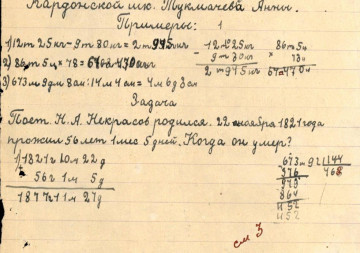 Кардонской шк. Тукмачева Анны.
Примеры: 1
1) 12 т 25 кг − 9 т 80 кг = 2 т 945 кг
2) 86 т 5 ц × 78 =
3) 673 м 9 дм 8 см : 14 м 4 см = 4 м 6 д 3 см
Задача
Поэт. Н. А. Некрасов родился. 22 ноября 1821 года
прожил 56 лет 1 мес 5 дней. Когда он умер?
1) 1821 г 10 м 22 д
56 г 1 м 5 д
1877 г 11 м 27 д
673 м 92 144
576 468
973
864
1152
1152
см 3